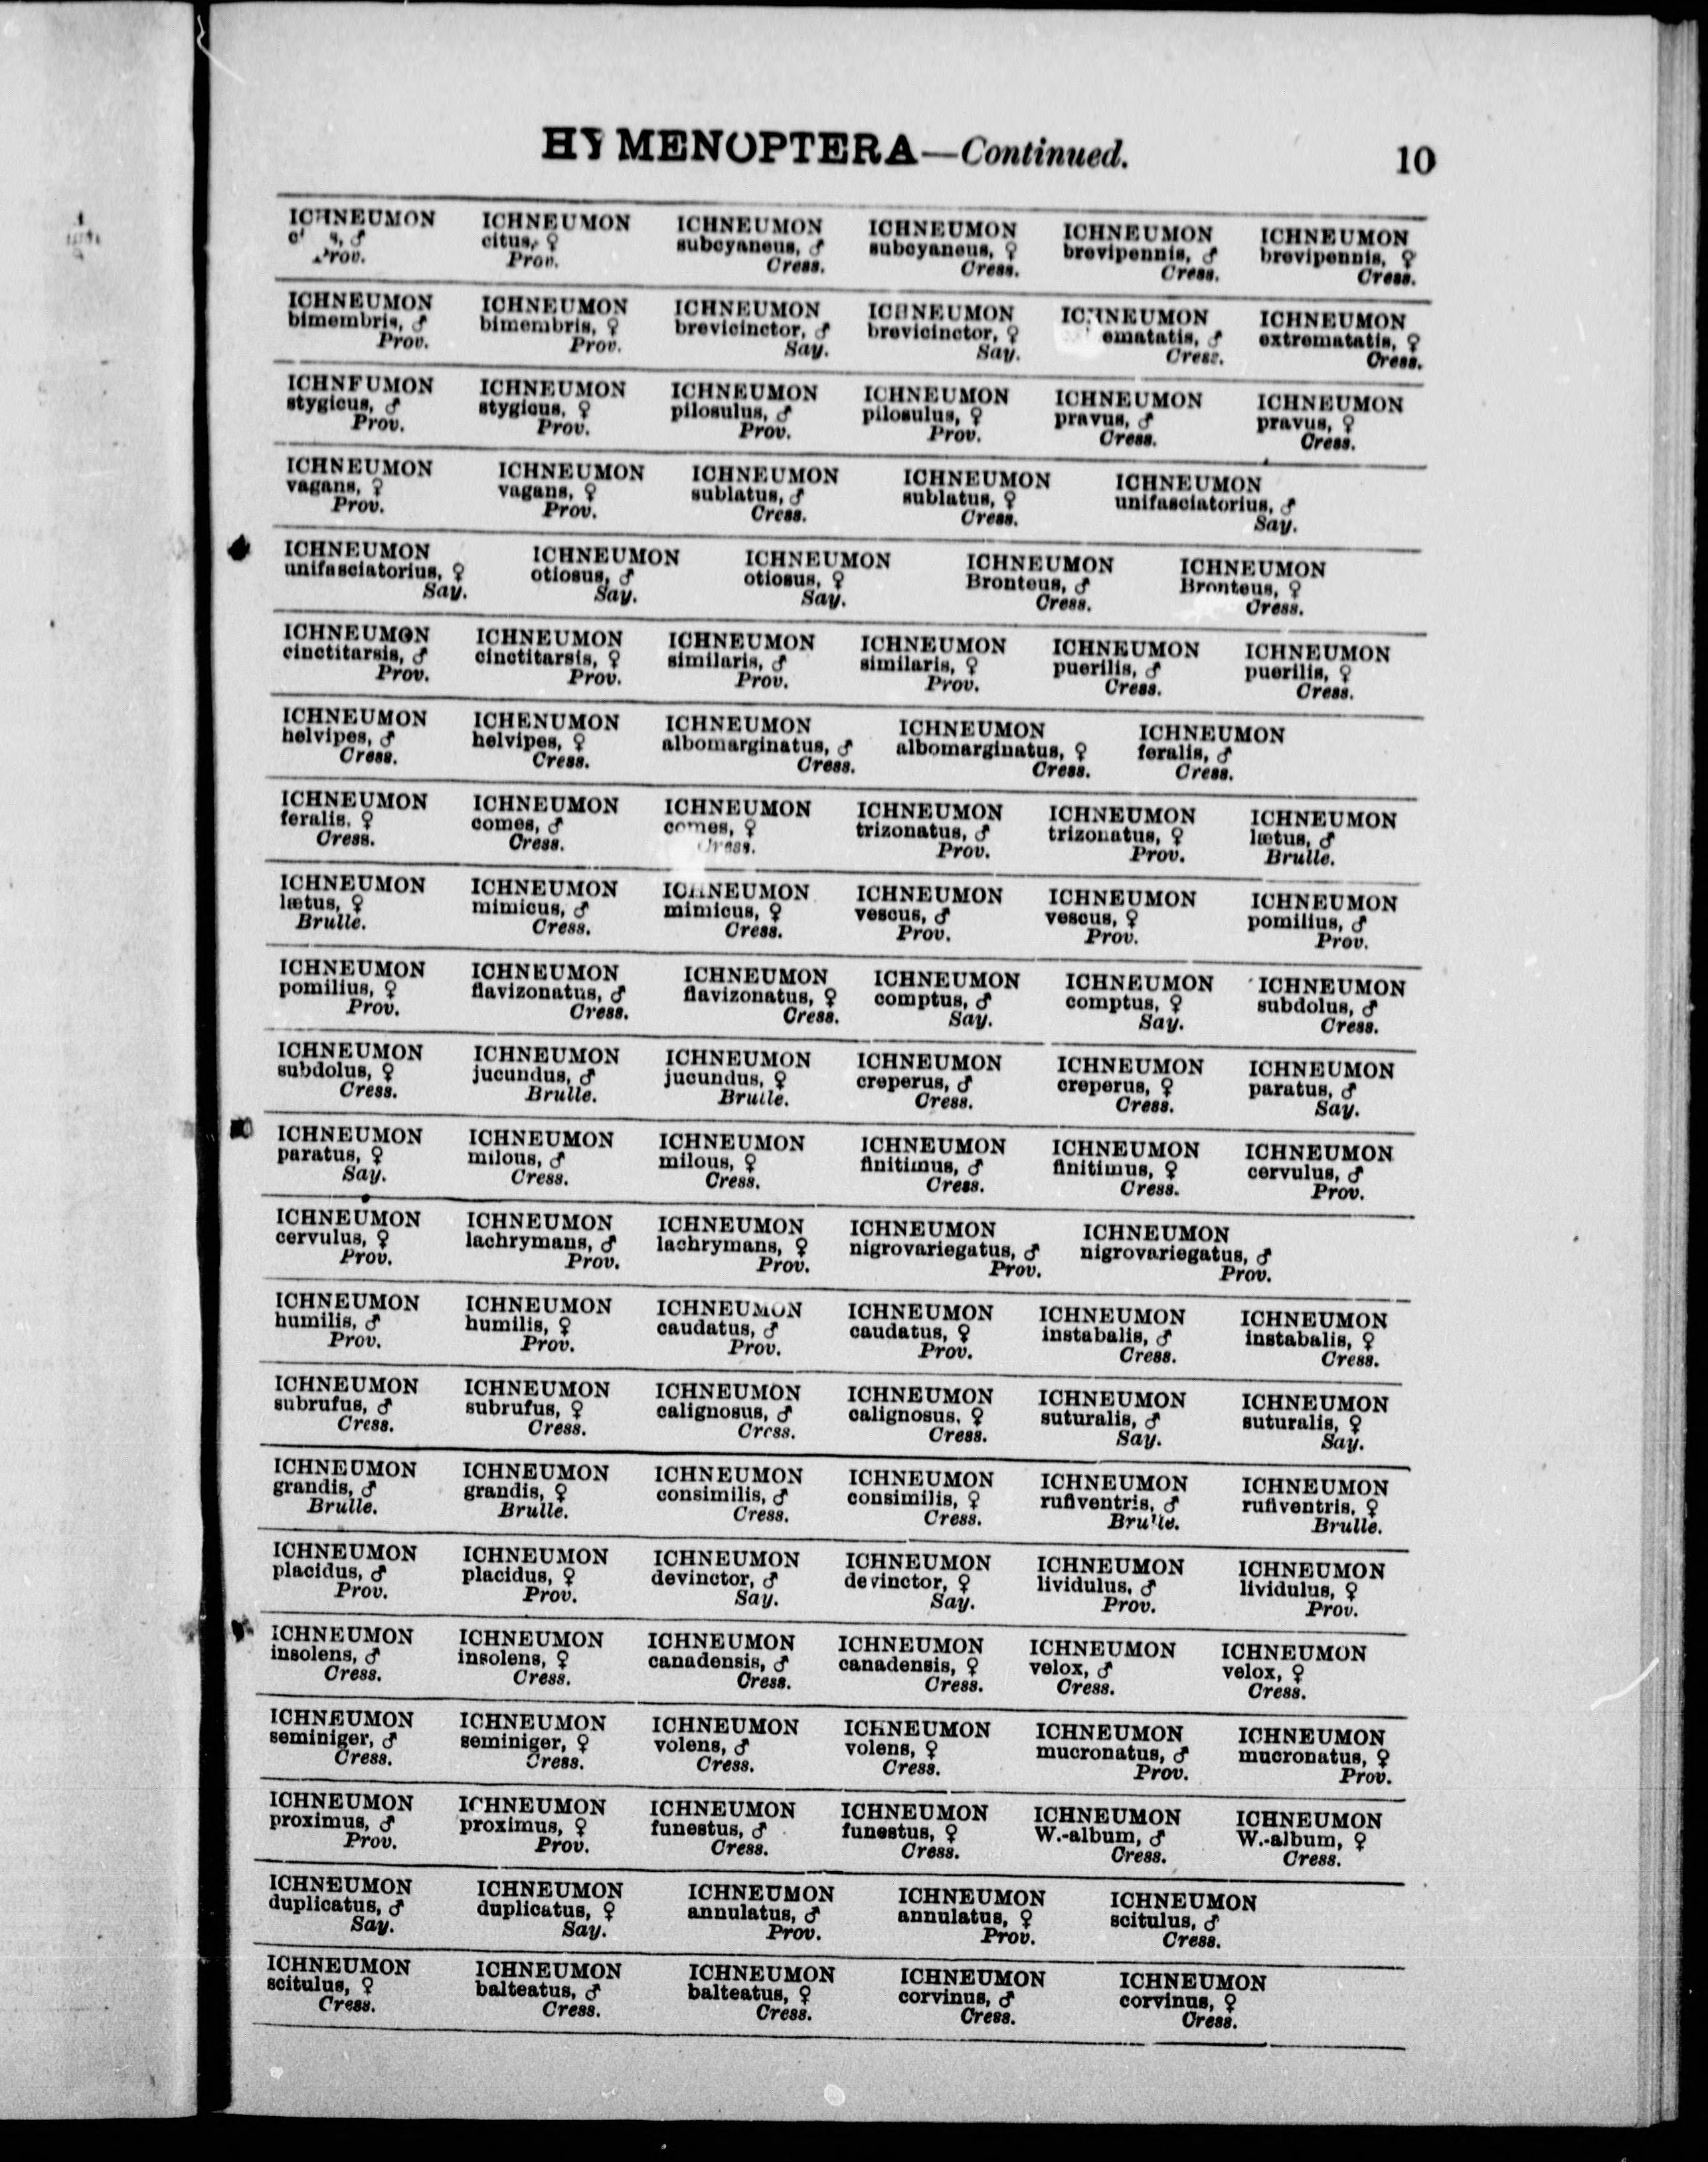 HYMENOPTERA—Continued. 10
ICHNEUMON ICHNEUMON ICHNEUMON ICHNEUMON ICHNEUMON ICHNEUMON
♂ citus, ♀ subcyaneus, ♂ subcyaneus, ♀ brevipennis, ♂ brevipennis, ♀
Prov. Prov. Cress. Cress. Cress. Cress.
ICHNEUMON ICHNEUMON ICHNEUMON ICHNEUMON ICHNEUMON ICHNEUMON
bimembris, ♂ bimembris, ♀ brevicinctor, ♂ brevicinctor, ♀ ematatis, ♂ extrematatis, ♀
Prov. Prov. Say. Say. Cress. Cress.
ICHNEUMON ICHNEUMON ICHNEUMON ICHNEUMON ICHNEUMON ICHNEUMON
stygicus, ♂ stygicus, ♀ pilosulus, ♂ pilosulus, ♀ pravus, ♂ pravus, ♀
Prov. Prov. Prov. Prov. Cress. Cress.
ICHNEUMON ICHNEUMON ICHNEUMON ICHNEUMON ICHNEUMON
vagans, ♀ vagans, ♀ sublatus, ♂ sublatus, ♀ unifasciatorius, ♂
Prov. Prov. Cress. Cress. Say.
ICHNEUMON ICHNEUMON ICHNEUMON ICHNEUMON ICHNEUMON
unifasciatorius, ♀ otiosus, ♂ otiosus, ♀ Bronteus, ♂ Bronteus, ♀
Say. Say. Say. Cress. Cress.
ICHNEUMON ICHNEUMON ICHNEUMON ICHNEUMON ICHNEUMON ICHNEUMON
cinctitarsis, ♂ cinctitarsis, ♀ similaris, ♂ similaris, ♀ puerilis, ♂ puerilis, ♀
Prov. Prov. Prov. Prov. Cress. Cress.
ICHNEUMON ICHENUMON ICHNEUMON ICHNEUMON ICHNEUMON
helvipes, ♂ helvipes, ♀ albomarginatus, ♂ albomarginatus, ♀ feralis, ♂
Cress. Cress. Cress. Cress. Cress.
ICHNEUMON ICHNEUMON ICHNEUMON ICHNEUMON ICHNEUMON ICHNEUMON
feralis, ♀ comes, ♂ comes, ♀ trizonatus, ♂ trizonatus, ♀ lætus, ♂
Cress. Cress. Cress. Prov. Prov. Brulle.
ICHNEUMON ICHNEUMON ICHNEUMON ICHNEUMON ICHNEUMON ICHNEUMON
lætus, ♀ mimicus, ♂ mimicus, ♀ vescus, ♂ vescus, ♀ pomilius, ♂
Brulle. Cress. Cress. Prov. Prov. Prov.
ICHNEUMON ICHNEUMON ICHNEUMON ICHNEUMON ICHNEUMON ICHNEUMON
pomilius, ♀ flavizonatus, ♂ flavizonatus, ♀ comptus, ♂ comptus, ♀ subdolus, ♂
Prov. Cress. Cress. Say. Say. Cress.
ICHNEUMON ICHNEUMON ICHNEUMON ICHNEUMON ICHNEUMON ICHNEUMON
subdolus, ♀ jucundus, ♂ jucundus, ♀ creperus, ♂ creperus, ♀ paratus, ♂
Cress. Brulle. Brulle. Cress. Cress. Say.
ICHNEUMON ICHNEUMON ICHNEUMON ICHNEUMON ICHNEUMON ICHNEUMON
paratus, ♀ milous, ♂ milous, ♀ finitimus, ♂ finitimus, ♀ cervulus, ♂
Say. Cress. Cress. Cress. Cress. Prov.
ICHNEUMON ICHNEUMON ICHNEUMON ICHNEUMON ICHNEUMON
cervulus, ♀ lachrymans, ♂ lachrymans, ♀ nigrovariegatus, ♂ nigrovariegatus, ♂
Prov. Prov. Prov. Prov. Prov.
ICHNEUMON ICHNEUMON ICHNEUMON ICHNEUMON ICHNEUMON ICHNEUMON
humilis, ♂ humilis, ♀ caudatus, ♂ caudatus, ♀ instabalis, ♂ instabalis, ♀
Prov. Prov. Prov. Prov. Cress. Cress.
ICHNEUMON ICHNEUMON ICHNEUMON ICHNEUMON ICHNEUMON ICHNEUMON
subrufus, ♂ subrufus, ♀ calignosus, ♂ calignosus, ♀ suturalis, ♂ suturalis, ♀
Cress. Cress. Cress. Cress. Say. Say.
ICHNEUMON ICHNEUMON ICHNEUMON ICHNEUMON ICHNEUMON ICHNEUMON
grandis, ♂ grandis, ♀ consimilis, ♂ consimilis, ♀ rufiventris, ♂ rufiventris, ♀
Brulle. Brulle. Cress. Cress. Brulle. Brulle.
ICHNEUMON ICHNEUMON ICHNEUMON ICHNEUMON ICHNEUMON ICHNEUMON
placidus, ♂ placidus, ♀ devinctor, ♂ devinctor, ♀ lividulus, ♂ lividulus, ♀
Prov. Prov. Say. Say. Prov. Prov.
ICHNEUMON ICHNEUMON ICHNEUMON ICHNEUMON ICHNEUMON ICHNEUMON
insolens, ♂ insolens, ♀ canadensis, ♂ canadensis, ♀ velox, ♂ velox, ♀
Cress. Cress. Cress. Cress. Cress. Cress.
ICHNEUMON ICHNEUMON ICHNEUMON ICHNEUMON ICHNEUMON ICHNEUMON
seminiger, ♂ seminiger, ♀ volens, ♂ volens, ♀ mucronatus, ♂ mucronatus, ♀
Cress. Cress. Cress. Cress. Prov. Prov.
ICHNEUMON ICHNEUMON ICHNEUMON ICHNEUMON ICHNEUMON ICHNEUMON
proximus, ♂ proximus, ♀ funestus, ♂ funestus, ♀ W.-album, ♂ W.-album, ♀
Prov. Prov. Cress. Cress. Cress. Cress.
ICHNEUMON ICHNEUMON ICHNEUMON ICHNEUMON ICHNEUMON
duplicatus, ♂ duplicatus, ♀ annulatus, ♂ annulatus, ♀ scitulus, ♂
Say. Say. Prov. Prov. Cress.
ICHNEUMON ICHNEUMON ICHNEUMON ICHNEUMON ICHNEUMON
scitulus, ♀ balteatus, ♂ balteatus, ♀ corvinus, ♂ corvinus, ♀
Cress. Cress. Cress. Cress. Cress.